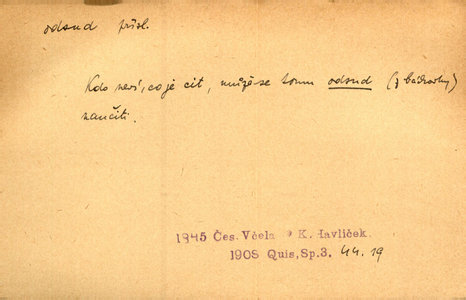 odsud přísl.
Kdo neví, co je cit, může se tomu odsud (z básně
naučiti.
1845 Čes. Včela K. Havlíček.
1908 Quis, Sp. 3. 44. 19